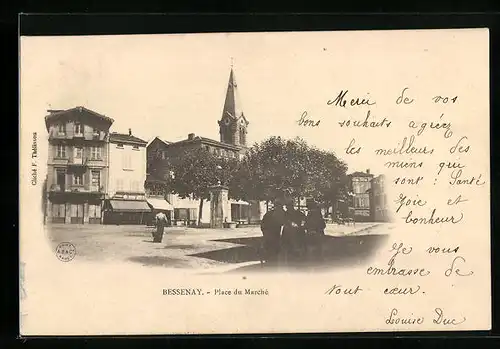 Cliché F. Thélisson
Merci de vos
bons souhaits agréez
les meilleurs des
miens qui
sont : Santé
Joie et
bonheur
Je vous
embrasse de
tout cœur.
Louise Duc
BESSENAY. - Place du Marché